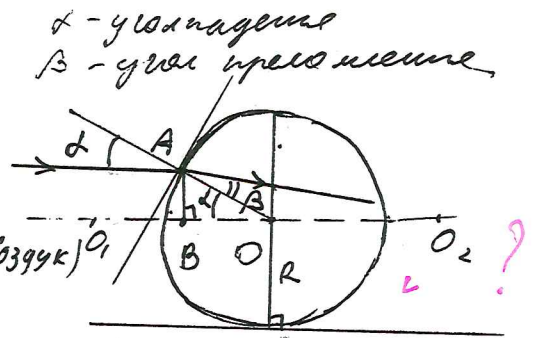 α - угол падения
β - угол преломления
α A
α β
оздух) O₁ B O O₂
R
?